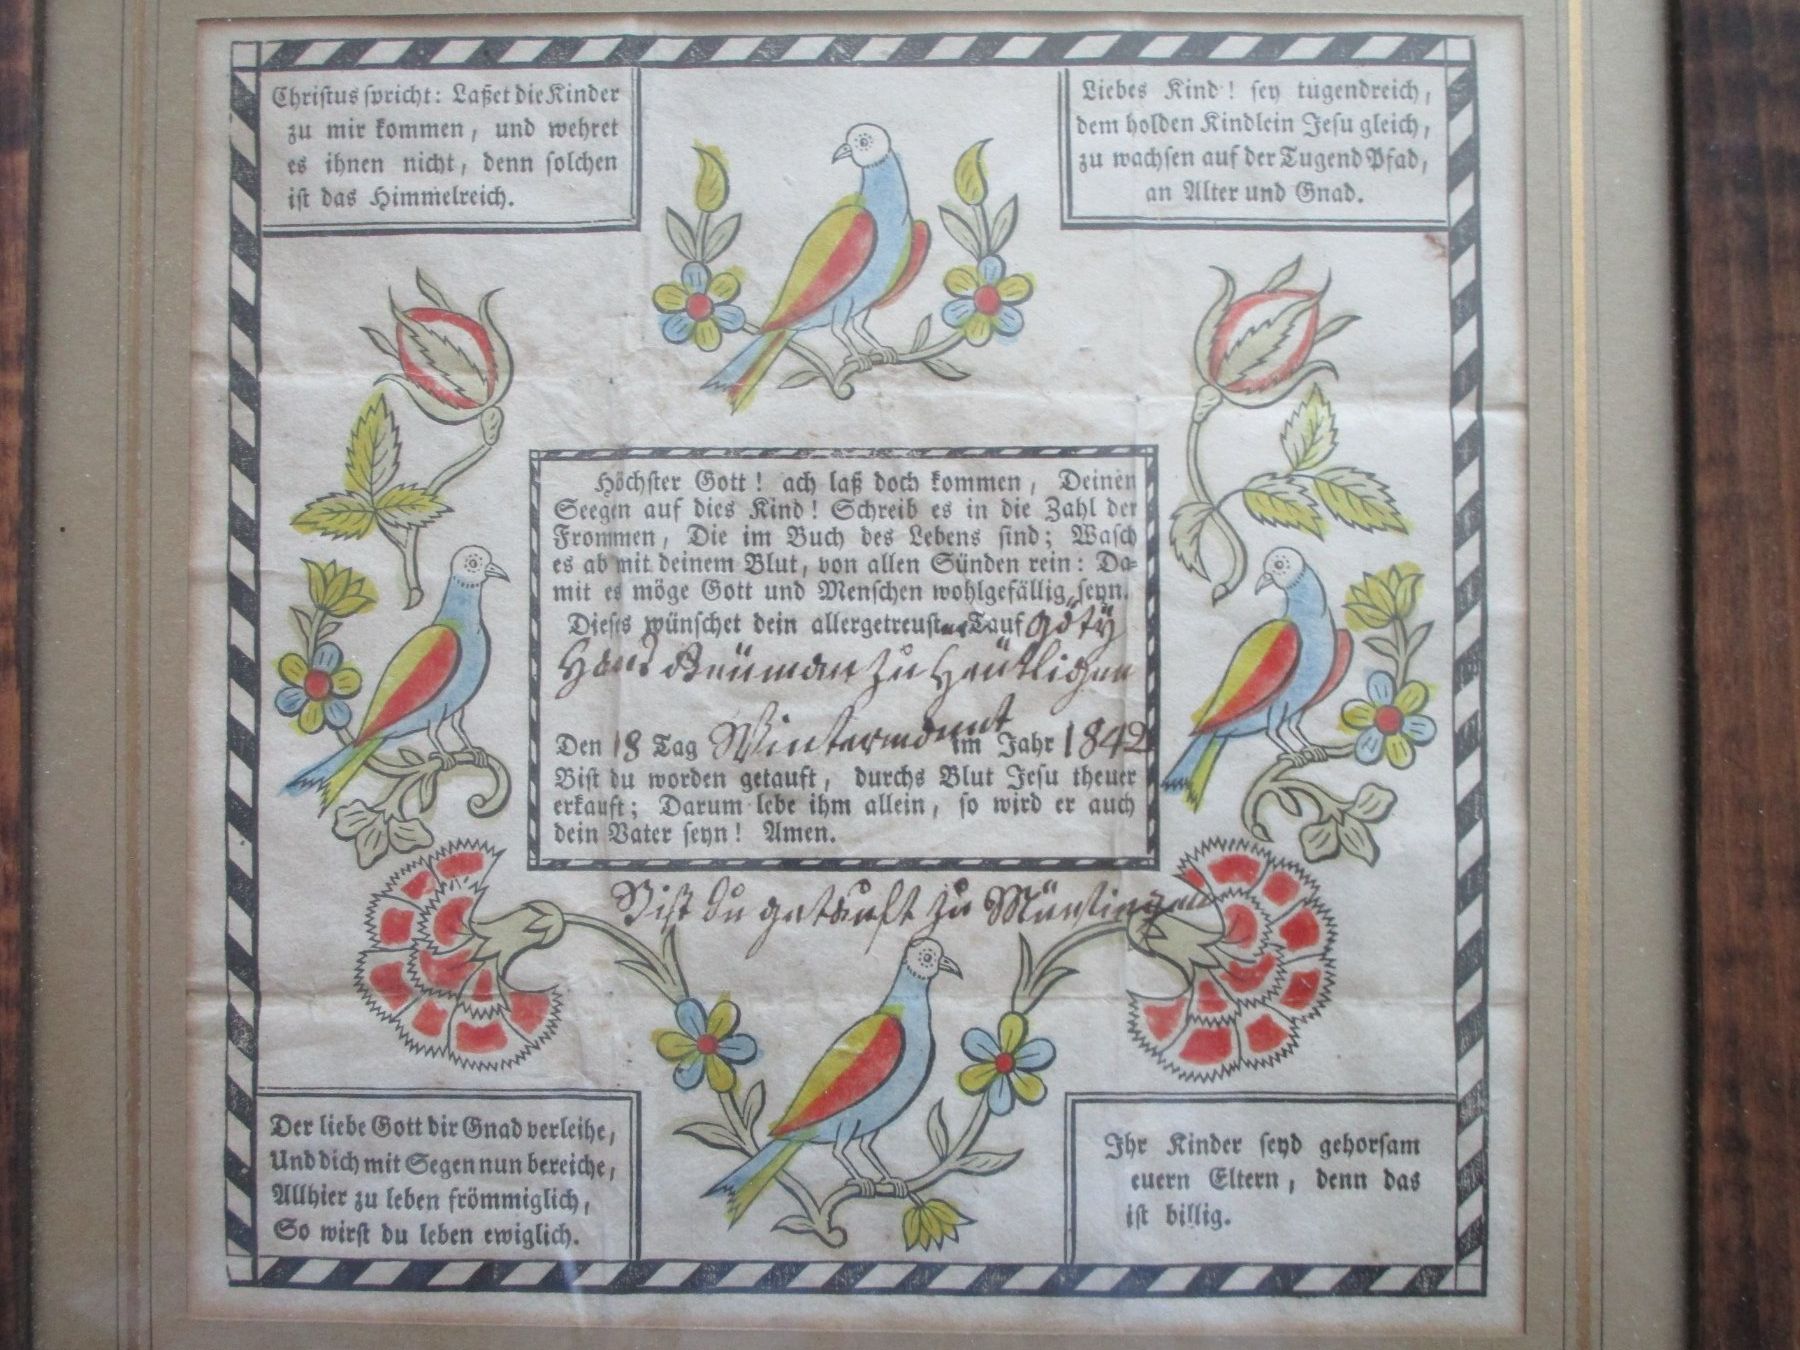 Christus spricht: Laßet die Kinder
zu mir kommen, und wehret
es ihnen nicht, denn solchen
ist das Himmelreich.
Liebes Kind! sey tugendreich,
dem holden Kindlein Jesu gleich,
zu wachsen auf der Tugend Pfad,
an Alter und Gnad.
Höchster Gott! ach laß doch kommen, Deinen
Seegen auf dies Kind! Schreib es in die Zahl der
Frommen, Die im Buch des Lebens sind; Wasch
es ab mit deinem Blut, von allen Sünden rein: Da-
mit es möge Gott und Menschen wohlgefällig seyn.
Dieses wünschet dein allergetreuster Tauf Götty
Hans zu
Den 18 Tag Wintermonnt im Jahr 1842
Bist du worden getauft, durchs Blut Jesu theuer
erkauft; Darum lebe ihm allein, so wird er auch
dein Vater seyn! Amen.
Bist du getauft zu Münsingen
Der liebe Gott dir Gnad verleihe,
Und dich mit Segen nun bereiche,
Allhier zu leben frömmiglich,
So wirst du leben ewiglich.
Ihr Kinder seyd gehorsam
euern Eltern, denn das
ist billig.